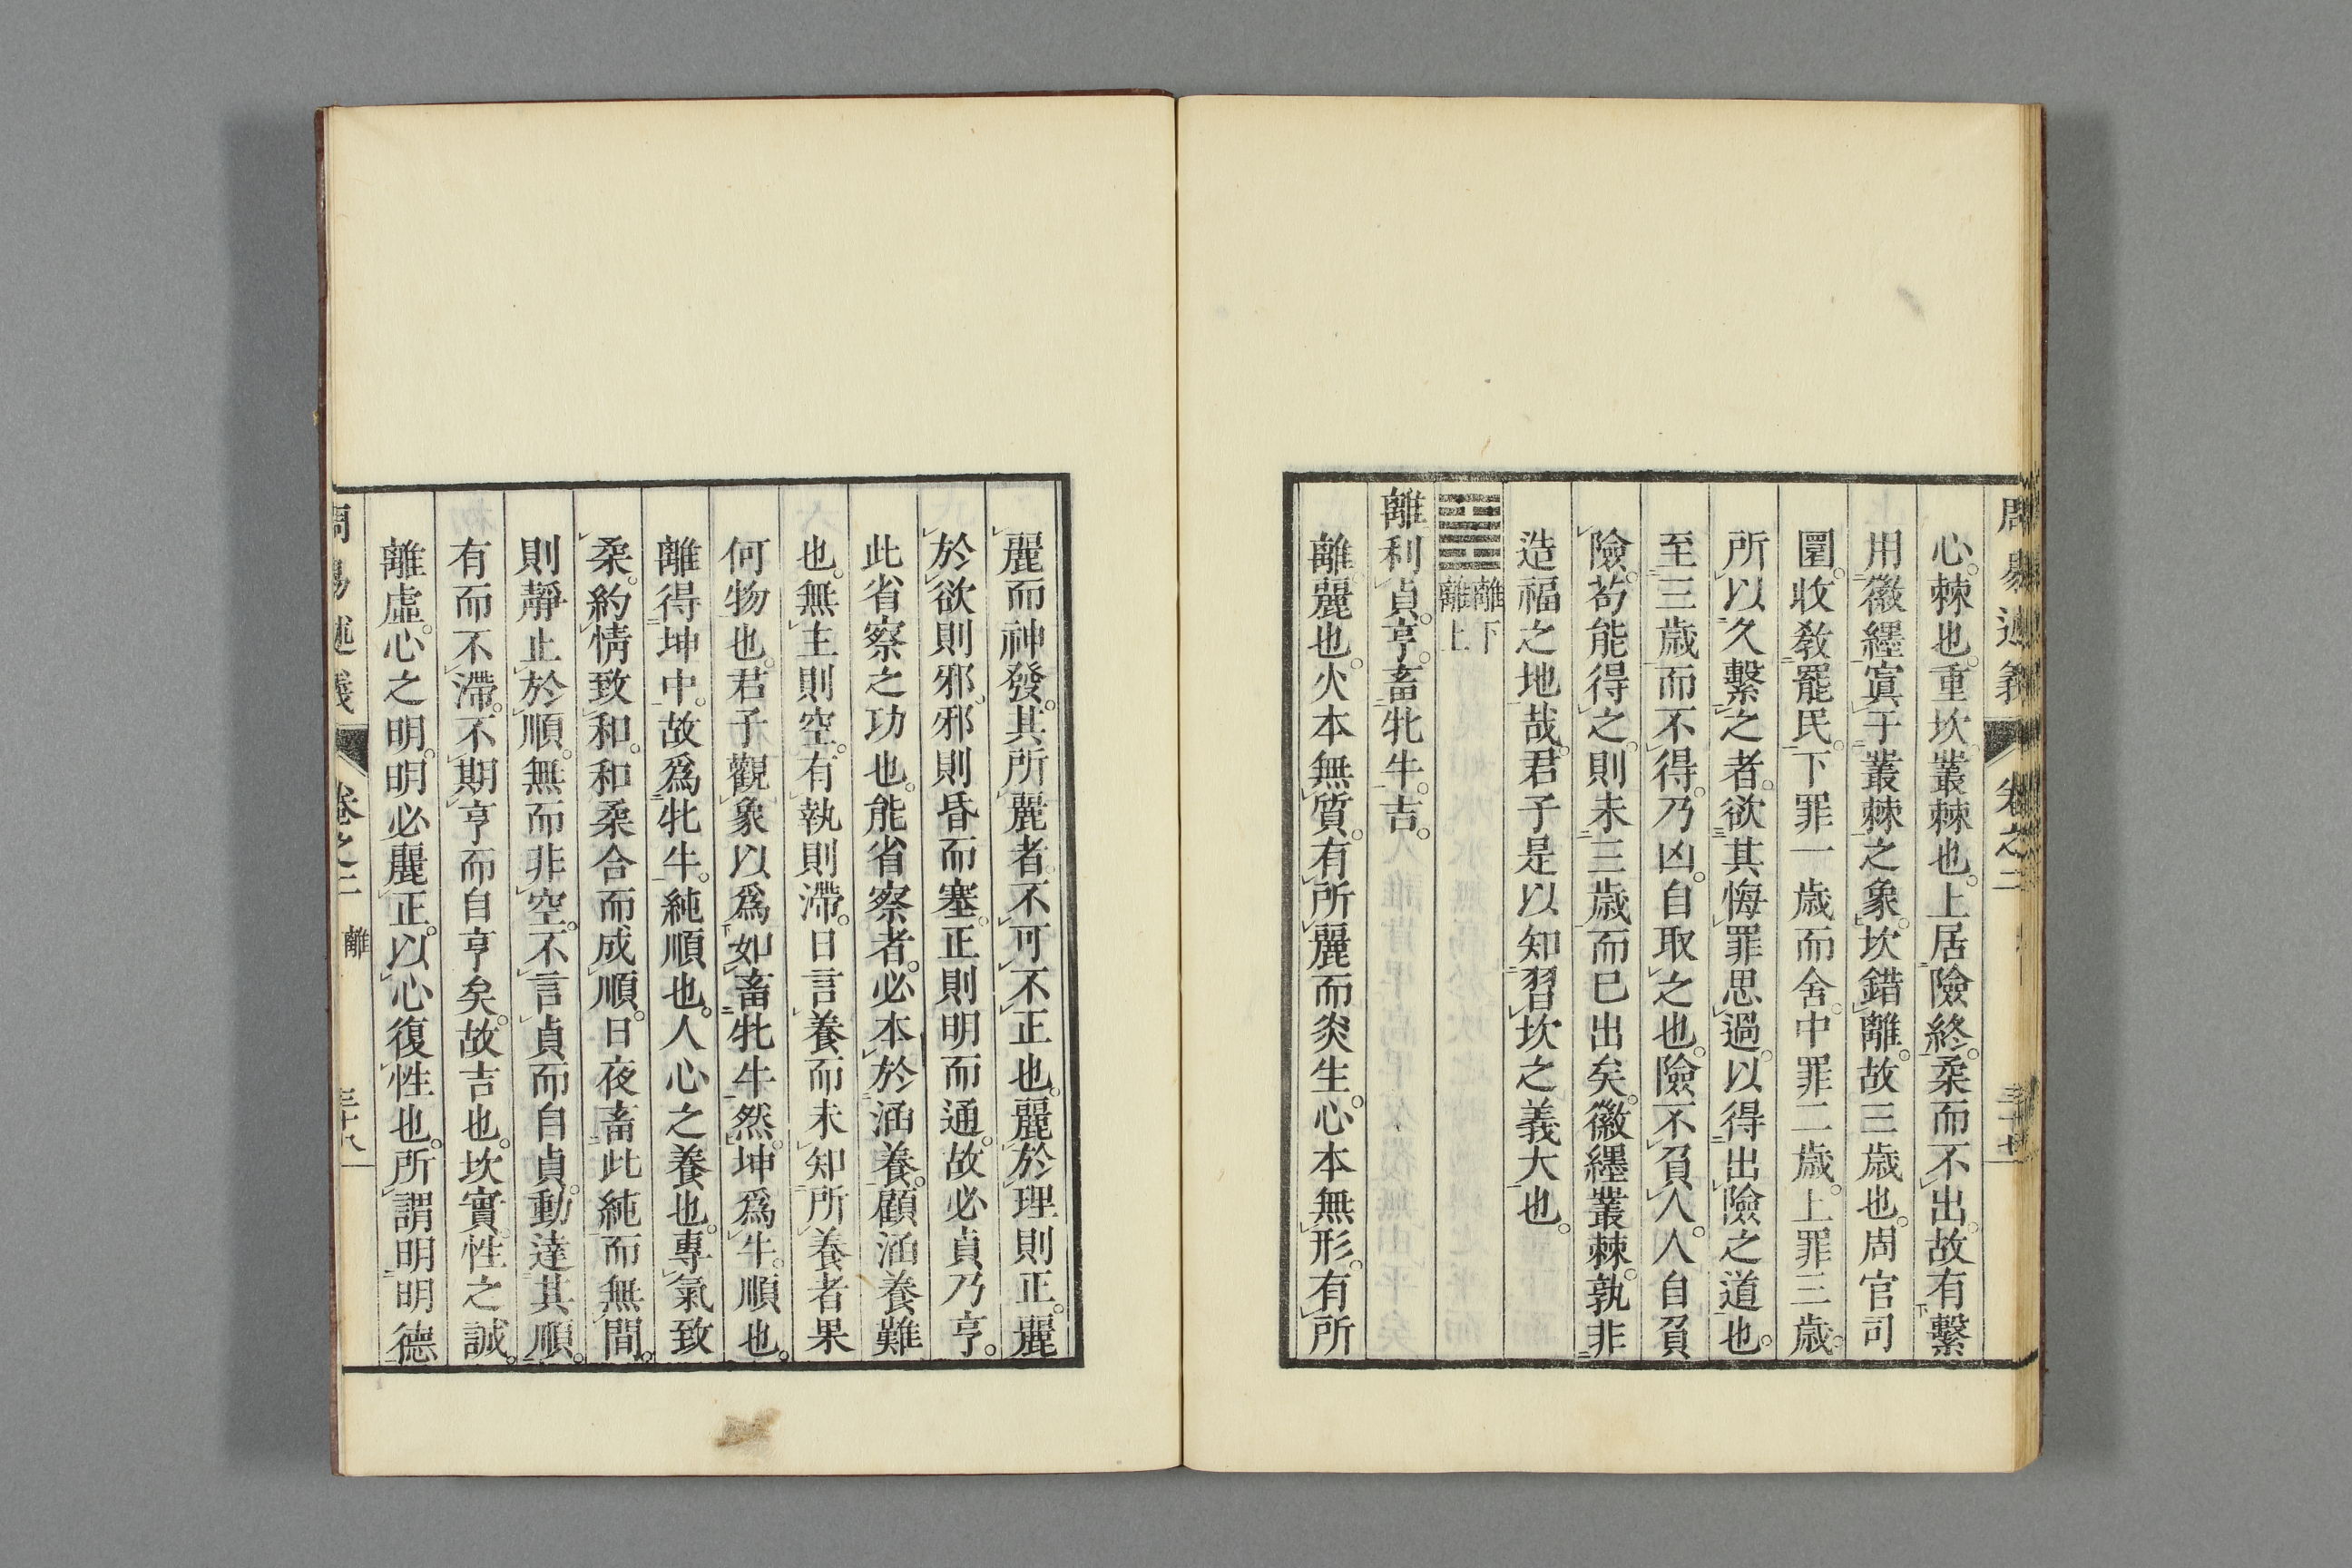 周易述義 卷之二
心。棘也。重坎。叢棘也。上居險終。柔而不出。故有繫
用徽纆寘于叢棘之象。坎錯離。故三歲也。周官司
圜。收教罷民。下罪一歲而舍。中罪二歲。上罪三歲。
所以久繫之者。欲其悔罪思過。以得出險之道也。
至三歲而不得。乃凶。自取之也。險不負人。人自負
險。苟能得之。則未三歲而已出矣。徽纆叢棘。孰非
造福之地哉。君子是以知習坎之義大也。
䷝離下離上
離利貞。亨。畜牝牛。吉。
離麗也。火本無質。有所麗而炎生。心本無形。有所
麗而神發。其所麗者。不可不正也。麗於理則正。麗
於欲則邪。邪則昏而塞。正則明而通。故必貞乃亨。
此省察之功也。能省察者。必本於涵養。顧涵養難
也。無主則空。有執則滯。日言養而未知所養者果
何物也。君子觀象以爲如畜牝牛然。坤爲牛。順也。
離得坤中。故爲牝牛。純順也。人心之養也。專氣致
柔。約情致和。和柔合而成順。日夜畜此純而無間。
則靜止於順。無而非空。不言貞而自貞。動達其順。
有而不滯。不期亨而自亨矣。故吉也。坎實。性之誠。
離虛。心之明。明必麗正。以心復性也。所謂明明德
周易述義 卷之二 離 三十八